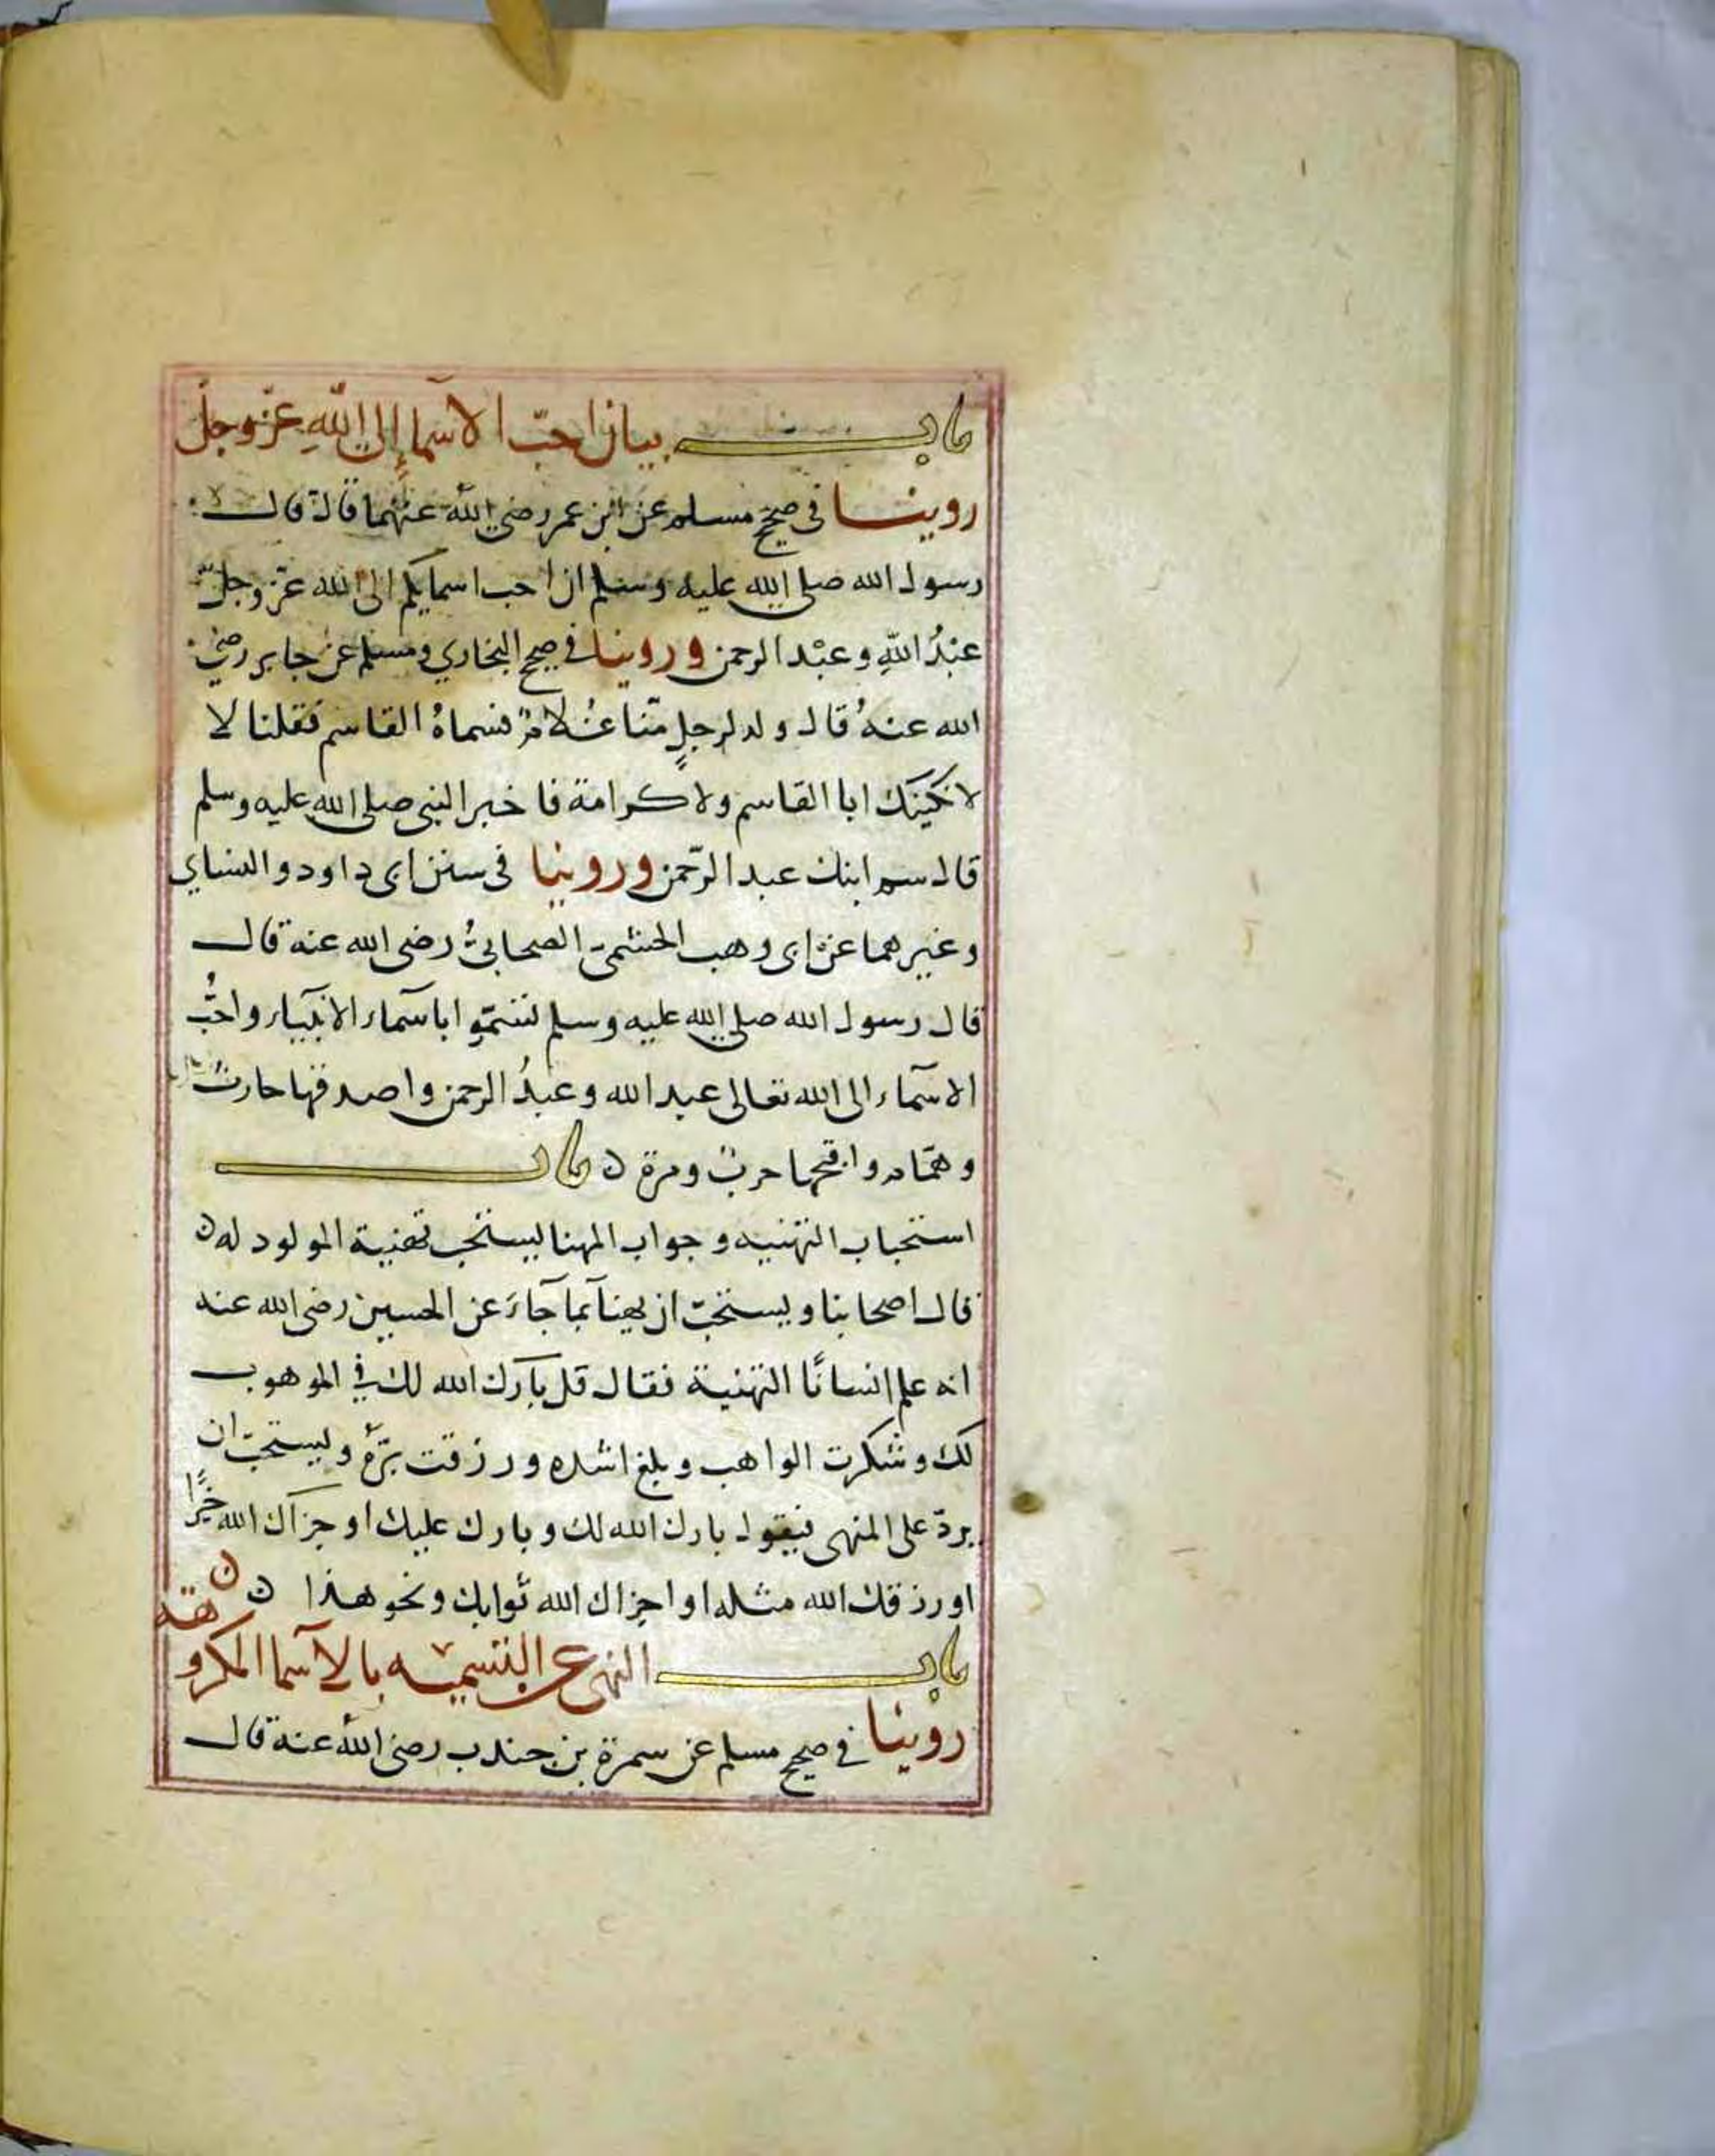 باب بيان احبّ الاسما إلى اللّهِ عزّ وجل
روينا في صحيح مسلم عن ابن عمر رضي اللّه عنهما قال قال
رسول الله صلى الله عليه وسلم ان احب اسمايكم الى الله عزّ وجلّ
عبْدُ اللّهِ وعبْد الرحمن وروينا في صحيح البخاري ومسلم عن جابر رضي
الله عنهُ قال ولد لرجلٍ منّا غُلامٌ فسماهُ القاسم فقلنا لا
لا نكنيك ابا القاسم ولا كرامة فاخبر النبي صلى الله عليه وسلم
قال سم ابنك عبد الرّحمن وروينا في سنن ابي داود والنساي
وغيرهما عن ابي وهب الجشمي الصحابيُّ رضي الله عنه قال
قال رسول الله صلى الله عليه وسلم تسمّوا باسمآء الانبيآء واحبُّ
الاسمآء الى الله تعالى عبد الله وعبدُ الرحمن واصدقها حارثٌ
وهمّام واقبحها حربٌ ومرة ن باب
استحباب التهنيه وجواب المهنا يستحب تهنية المولود له ن
قال اصحابنا ويستحبّ ان يهنآ بما جآءَ عن الحسين رضي الله عنه
انه علم انسانًا التهنية فقال قل بارك الله لك في الموهوب
لك وشكرت الواهب وبلغ اشده ورزقت برّهُ ويستحبّ ان
يردّ على المنهي فيقول بارك الله لك وبارك عليك او جزاك الله خيرًا
او رزقك الله مثله او اجزاك الله ثوابك ونحو هذا ن ن
باب النهي عن التسميه بالاسما المكروهة
روينا في صحيح مسلم عن سمرة بن جندب رضي اللّه عنه قال